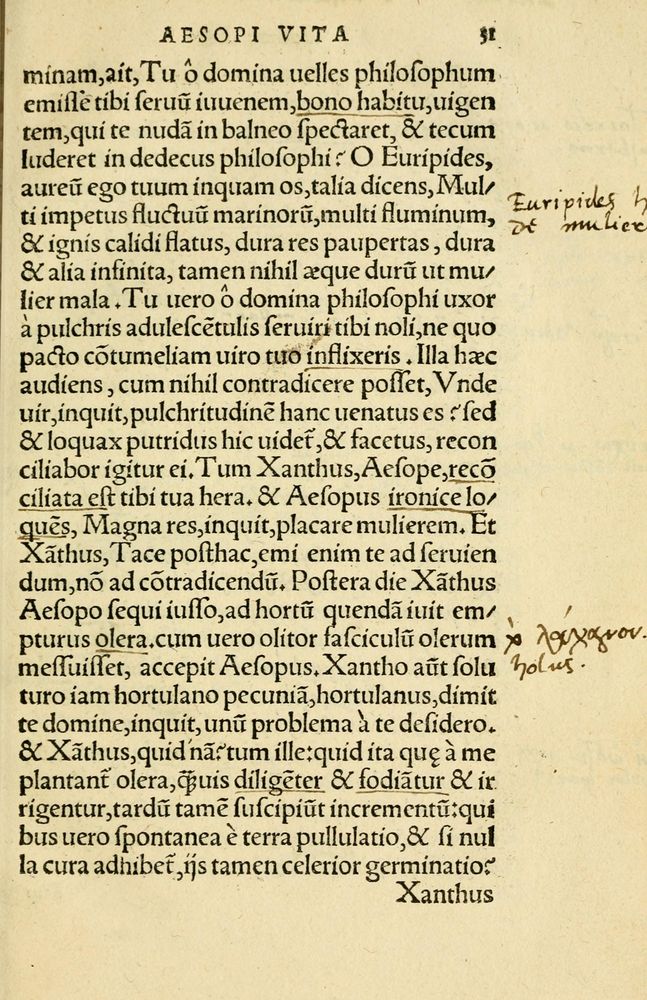 AESOPI VITA 31
minam,ait,Tu ô domina uelles philosophum
emisse tibi seruũ iuuenem,bono habitu,uigen
tem,qui te nudã in balneo spectaret, & tecum
luderet in dedecus philosophi? O Euripides,
aureũ ego tuum inquam os,talia dicens, Mul/
ti impetus fluctuũ marinorũ,multi fluminum,
& ignis calidi flatus, dura res paupertas, dura
& alia infinita, tamen nihil æque durũ ut mu/
lier mala. Tu uero ô domina philosophi uxor
à pulchris adulescẽtulis seruiri tibi noli,ne quo
pacto cõtumeliam uiro tuo inflixeris. Illa hæc
audiens, cum nihil contradicere posset, Vnde
uir,inquit,pulchritudinẽ hanc uenatus es? sed
& loquax putridus hic uidet̃,& facetus, recon
ciliabor igitur ei. Tum Xanthus, Aesope,recõ
ciliata est tibi tua hera. & Aesopus ironice lo/
quẽs, Magna res,inquit,placare mulierem. Et
Xãthus, Tace posthac,emi enim te ad seruien
dum,nõ ad cõtradicendũ. Postera die Xãthus
Aesopo sequi iusso,ad hortũ quendã iuit em/
pturus olera.cum uero olitor fasciculũ olerum
messuisset, accepit Aesopus. Xantho aũt solu
turo iam hortulano pecuniã,hortulanus,dimit
te domine,inquit,unũ problema à te desidero.
& Xãthus,quid nã? tum ille:quid ita quę à me
plantant̃ olera,q̃uis diligẽter & fodiãtur & ir
rigentur,tardũ tamẽ suscipiũt incrementũ:qui
bus uero spontanea è terra pullulatio,& si nul
la cura adhibet̃,ijs tamen celerior germinatio?
Xanthus
Euripides
de mulier
λάχανον.
holus.